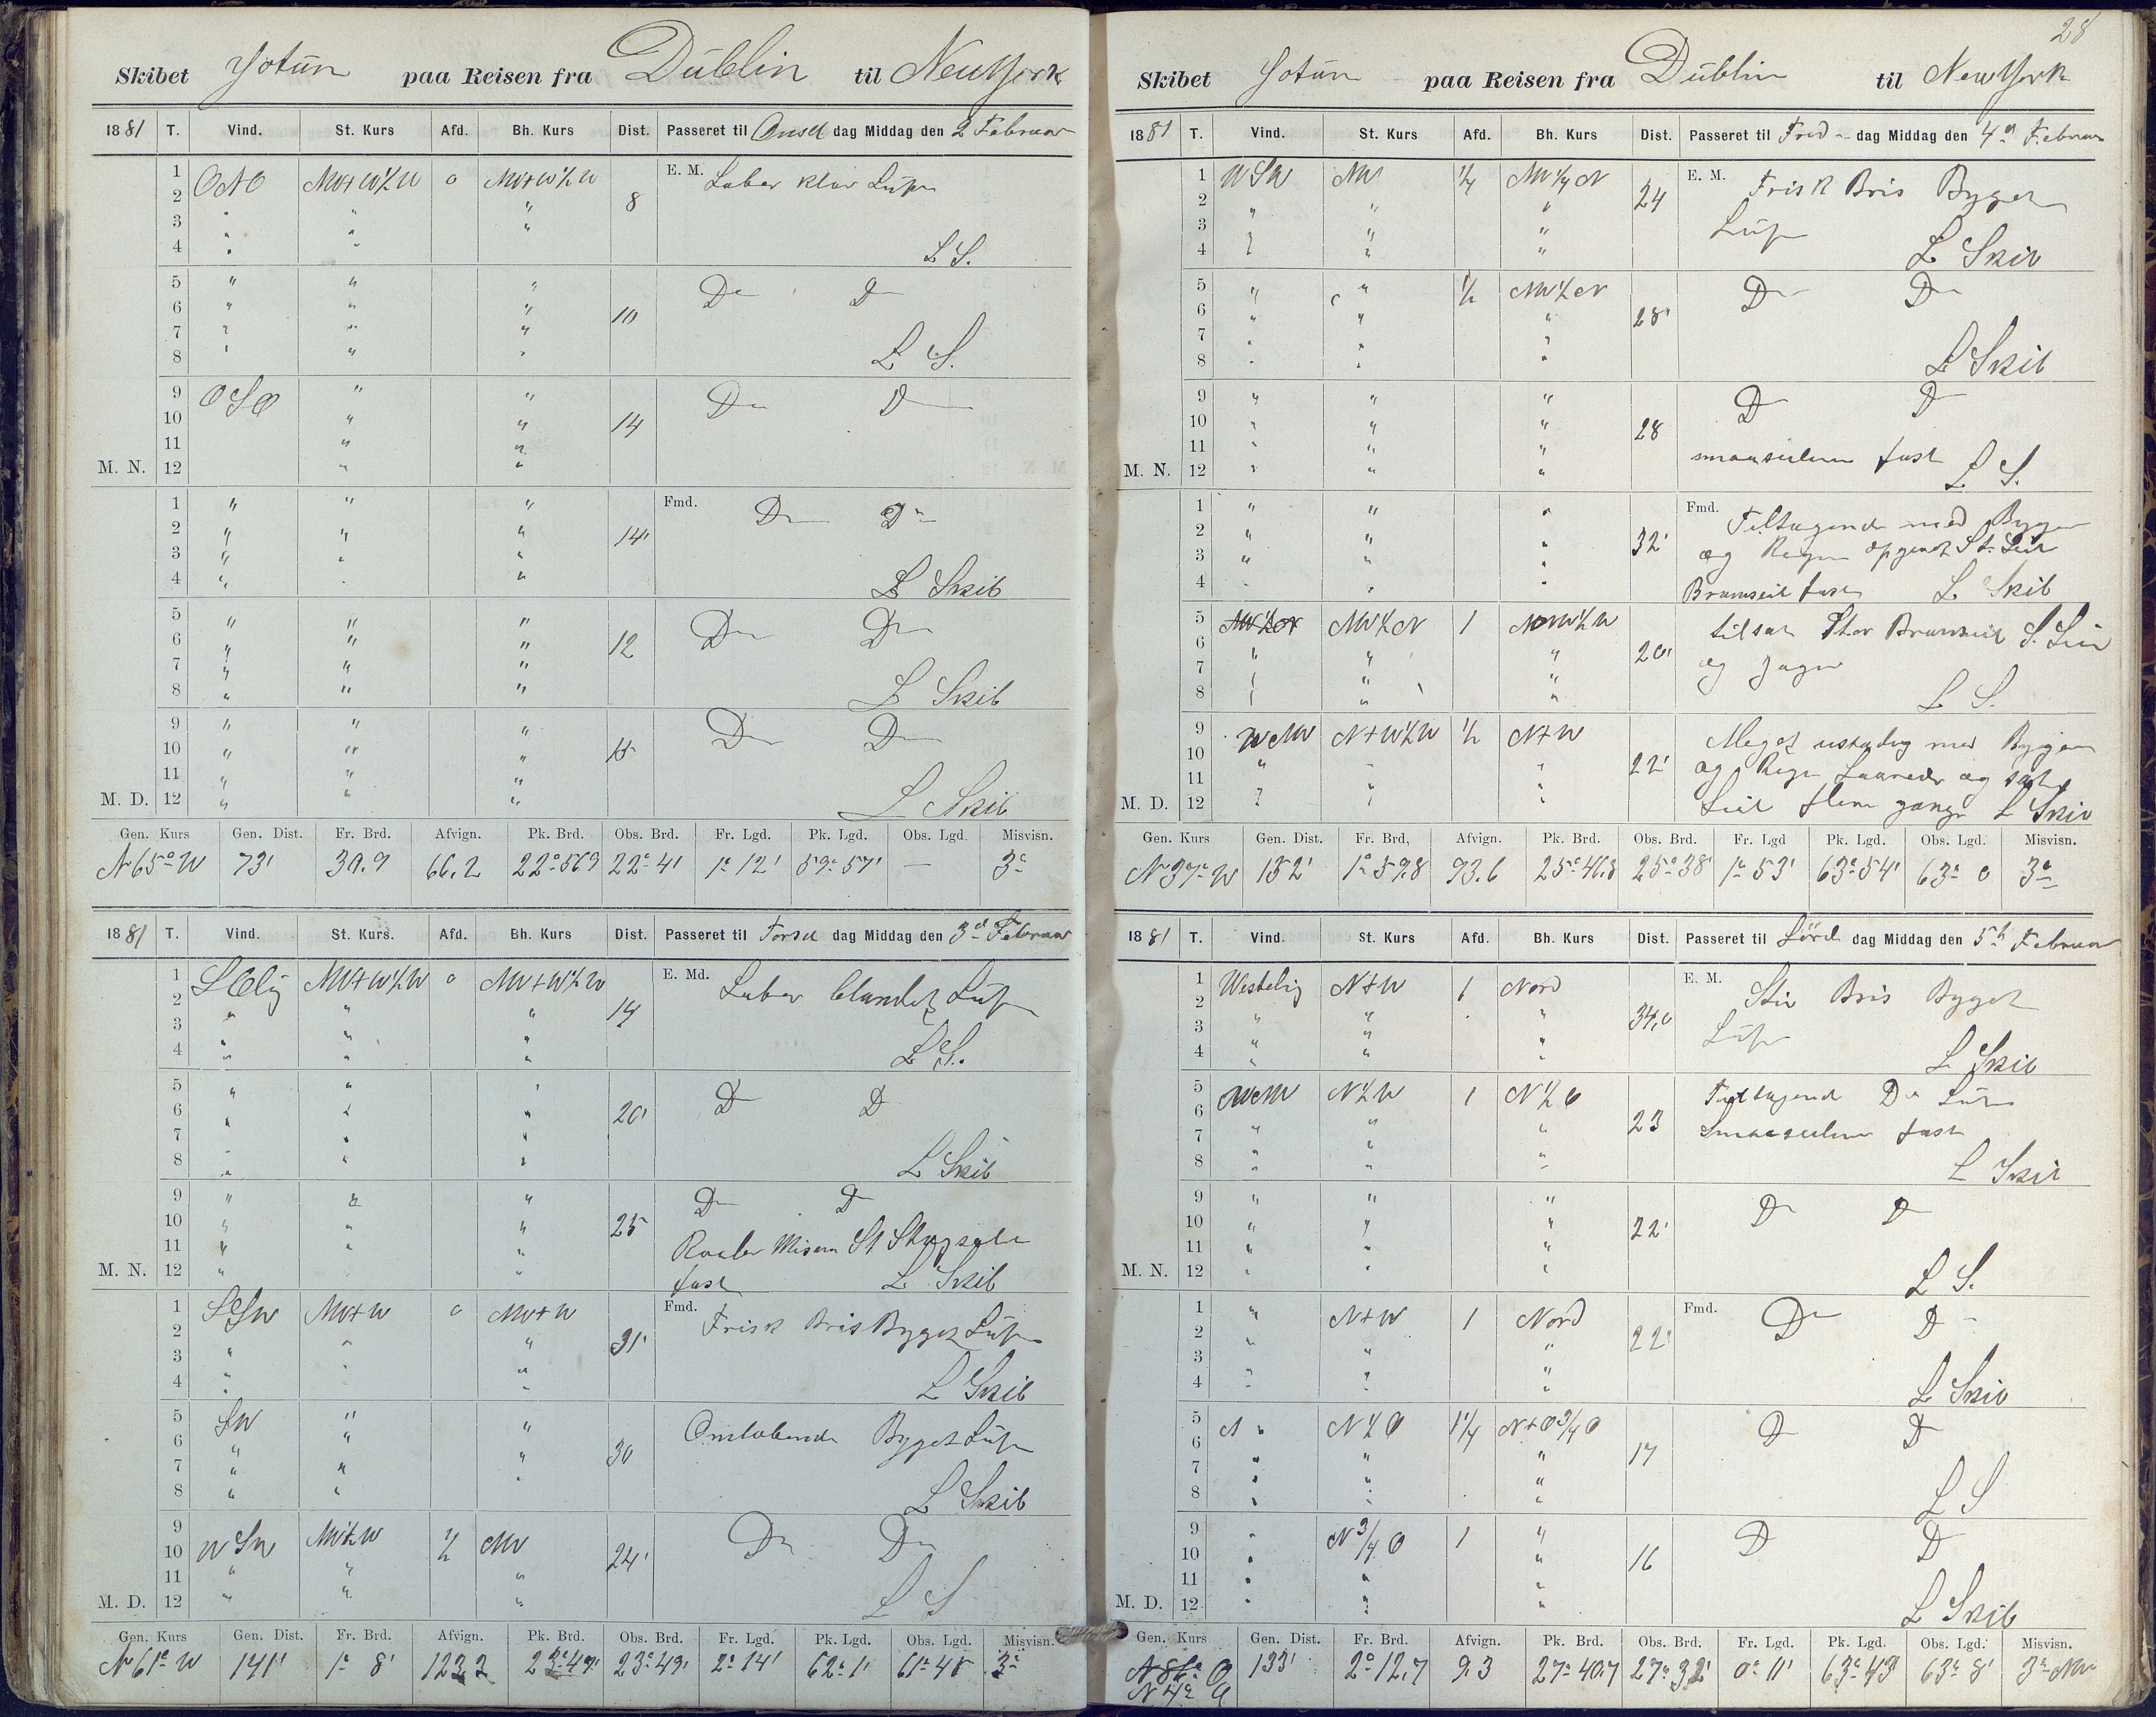 28
Skibet Jotun paa Reisen fra Dublin til New York
1881 T. Vind. St. Kurs Afd. Bh. Kurs Dist. Passeret til Onsd dag Middag den 2 Februar
1 ONO NW+W½W 0 NW+W½W E. M. Laber klar Luft
2 " " " 8
3 " " "
4 " " L S.
5 " " " Do Do
6 " " " 10
7 " " "
8 " " " L S.
9 OSO " " Do D
10 " " 14
11 " "
M. N. 12 " "
1 " " " Fmd. Do Do
2 " " " 14'
3 " " "
4 " " " L Skib
5 " " " Do Do
6 " " " 12
7 " " "
8 " " " L Skib
9 " " " Do Do
10 " " " 15
11 " " "
M. D. 12 " " " L Skib
Gen. Kurs Gen. Dist. Fr. Brd. Afvign. Pk. Brd. Obs. Brd. Fr. Lgd. Pk. Lgd. Obs. Lgd. Misvisn.
N 65° W 73' 30.9 66.2 22°56.9 22°41 1°12' 59°57' — 3°
1881 T. Vind. St. Kurs. Afd. Bh. Kurs Dist. Passeret til Torsd dag Middag den 3d Februar
1 SOlig NW+W½W 0 NW+W½W E. Md. Laber blandet Luft
2 " " " 14
3 " " "
4 " " " L S.
5 " " " D D
6 " " " 20'
7 " " "
8 " " " L Skib
9 " " " Do D
10 " " " 25
11 " " " Misan St Stagseile
M. N. 12 " " " fast L Skib
1 SSW NW+W 0 NW+W Fmd. Frisk Bris Byget Luft
2 " " 31'
3 " " "
4 " " " L Skib
5 SW " " Omlobende Byget Luft
6 " " " 30
7 " " "
8 " " L Skib
9 WSW NW½W ½ NW Do Do
10 " 24'
11 " " "
M. D. 12 " " " L S
Gen. Kurs Gen. Dist. Fr. Brd. Afvign. Pk. Brd. Obs. Brd. Fr. Lgd. Pk. Lgd. Obs. Lgd. Misvisn.
N 61° W 141' 1° 8' 123.2 23°49' 23°49' 2°14' 62°1' 61°48 3°
Skibet Jotun paa Reisen fra Dublin til New York
1881 T. Vind. St. Kurs Afd. Bh. Kurs Dist. Passeret til Fred dag Middag den 4d Februar
1 WSW NW ¼ NW¼N E. M. Frisk Bris Byget
2 " " " 24
3 " " " Luft
4 " " " L Skib
5 " " ½ NW½N Do Do
6 " " " 28'
7 " " "
8 " " " L Skib
9 " " " D D
10 " " " 28
11 " " " smaaseilene fast
M. N. 12 " " " L S.
1 " " " Fmd. Tiltagende med Byger
2 " " " 32'
3 " " " og Regn opgivet St. Seil
4 " " " Bramseil fast L Skib
5 NW½N NW½N 1 NNW½W tilsat Stor Bramseil S. Seil
6 " " " 20'
7 " " " og Jager
8 " " " L S.
9 WNW N+W½W ½ N+W Meget ustadig med Bygen
10 22'
11 " " " og Regn og sat
M. D. 12 " " " Seil flere gange L Skib
Gen. Kurs Gen. Dist. Fr. Brd, Afvign. Pk. Brd. Obs. Brd. Fr. Lgd Pk. Lgd. Obs. Lgd. Misvisn.
N 37° W 152' 1°59.8 93.6 25°46.8 25°38' 1°53' 63°54' 63° 0 3°
1881 T. Vind. St. Kurs Afd. Bh. Kurs Dist. Passeret til Lörd dag Middag den 5h Februar
1 Westelig N+W 1 Nord E. M. Stiv Bris Byget
2 " " " 34,0
3 " " " Luft
4 " " " L Skib
5 WNW N½W 1 N½O Tiltagende Do Luft
6 23
7 " " " Smaaseilene fast
8 " " " L Skib
9 " " " Do D
10 " " " 22'
11 " " "
M. N. 12 " " " L S.
1 " N+W 1 Nord Fmd. Do D
2 " 22'
3 " " "
4 " " " L Skib
5 N½O 1¼ N+O¾O D D
6 17
7 " " "
8 " " " L S
9 " N¾O 1 " D D
10 " " 16
11 " " "
M. D. 12 " " " L Skib
Gen. Kurs Gen. Dist. Fr. Brd. Afvign. Pk. Brd. Obs. Brd. Fr. Lgd. Pk. Lgd. Obs. Lgd. Misvisn.
N 4° O 133' 2°12,7 9.3 27°40,7 27°32' 0°11' 63°43 63°8' 3°NW